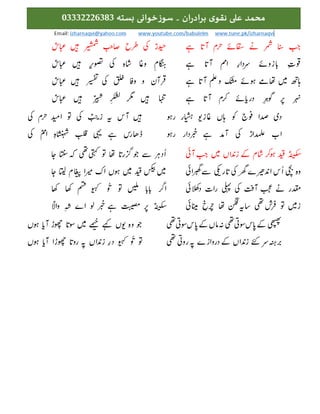 محمد علی نقوی برادران ۔ سوزخوانی بستہ 03332226383
Email: izharnaqvi@yahoo.com www.youtube.com/babulelm www.tune.pk/izharnaqvi
جب سنا شمر نے سقائے حرم آتا ہے حیدر کی طرح صاحب شمشیر ہیں عباسؑ
قوتِ بازوئے سردارِ امم آتا ہے ہنگامِ وغا شاہ کی تصویر ہیں عباسؑ
ہاتھ میں تھامے ہوئے مشک و علم آتا ہے قرآنِ وفا خلق کی تفسیر ہیں عباسؑ
نہر پر گوہرِ دریائے کرم آتا ہے تنہا ہیں مگر لشکرِ شبیر ہیں عباسؑ
دی صدا فوج کو ہاں غازیو ہشیار رہو ہیں آس یہ زینب کی تو امید حرم کی
اب علمدار کی آمد ہے خبردار رہو ڈھارس ہے یہی قلب شہنشاہِ امم کی
سکینہ قید ہو کر شام کے زنداں میں جب آئی اُدھر سے جو گزرتا تھا تو کہتی تھی کہ سنتا جا
وہ بچی اُس اندھیرے گھر کی تاریکی سے گھبرائی میں قید میں ہوں اک میرا پیغام لیتا جا
مقدر نے عجب آفت کی پہلی رات دکھلائی اگر بابا ملیں تو کہیو کھا کھا
زمیں تو فرش تھی سایہ فگن تھا چرخ مینائی سکینہ پر مصیبت ہے خبر لو اے شہ والا
پھپھی کے پاس سوتی تھی نہ ماں کے پاس سوتی تھی وہ جو یوں کہے کہنے میں سوتا چھوڑ آیا ہوں
برہنہ سر کئے زنداں کے دروازے پہ روتی تھی تو کہیو درِ زنداں پہ روتا چھوڑا آیا ہوں